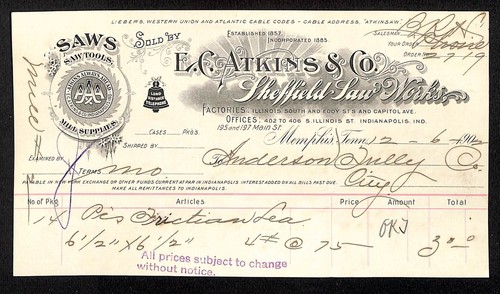 LIEBER'S, WESTERN UNION AND ATLANTIC CABLE CODES - CABLE ADDRESS, "ATKINSAW."
SAWS
SAW TOOLS,
MILL SUPPLIES.
SOLD BY
ESTABLISHED 1857.
INCORPORATED 1885.
SALESMAN
YOUR ORDER
ORDER NO.
E. C. ATKINS & CO.
Sheffield Saw Works.
LONG DISTANCE TELEPHONE
FACTORIES. ILLINOIS SOUTH AND EDDY STS AND CAPITOL AVE.
OFFICES. 402 TO 406 S. ILLINOIS ST. INDIANAPOLIS. IND.
195 and 197 Main St.
CASES PKGS
Memphis, Tenn. 12-6-190
EXAMINED BY
SHIPPED BY
To Anderson Tully Co.
TERMS mo
City
PAYABLE IN NEW YORK EXCHANGE OR OTHER FUNDS CURRENT AT PAR IN INDIANAPOLIS INTEREST ADDED ON ALL BILLS PAST DUE.
MAKE ALL REMITTANCES TO INDIANAPOLIS.
No of Pkg Articles Price Amount Total
14 Pcs Friction Lea
6 1/2" X 6 1/2" 4# @ 75 3 00
All prices subject to change
without notice.